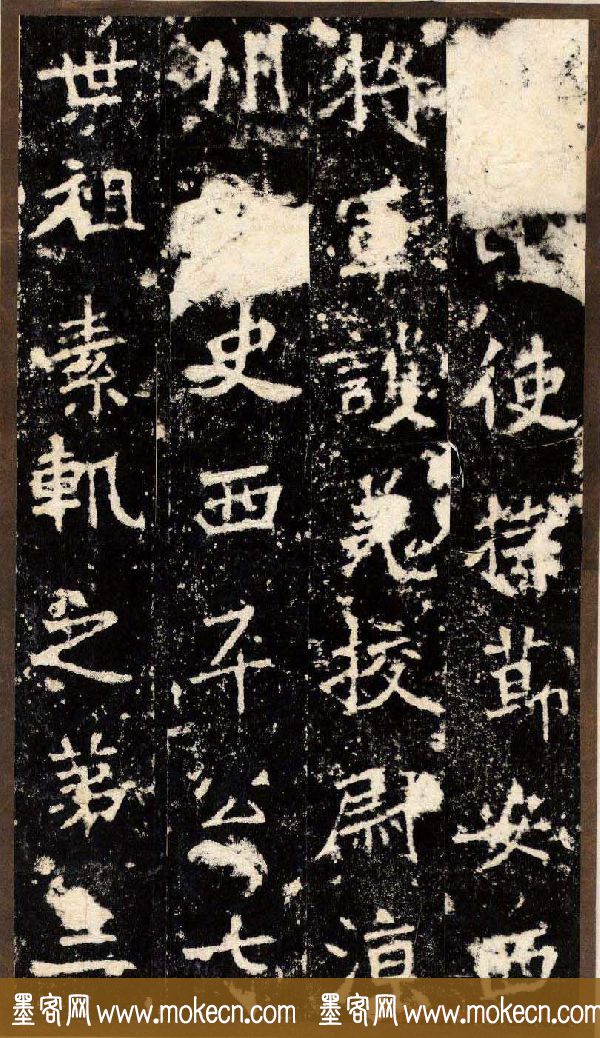 使持節安西
將軍護羌校尉涼
州史西平公七
世祖素軌之第三
墨客网 www.mokecn.com 墨客网 www.mokecn.com